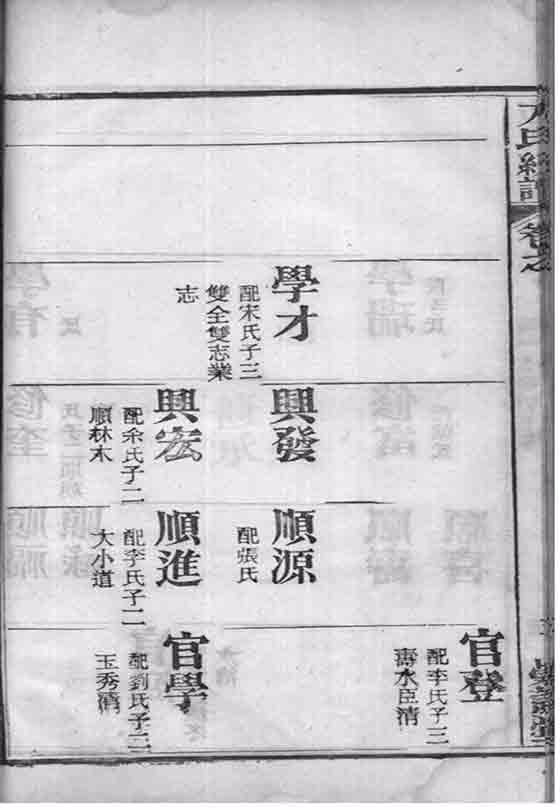 卷之
學才
配宋氏子三
雙全雙志業
志
興發
興宏
配余氏子二
順林木
順源
配張氏
順進
配李氏子二
大小道
官登
配李氏子三
壽水臣清
官學
配劉氏子二
玉秀清